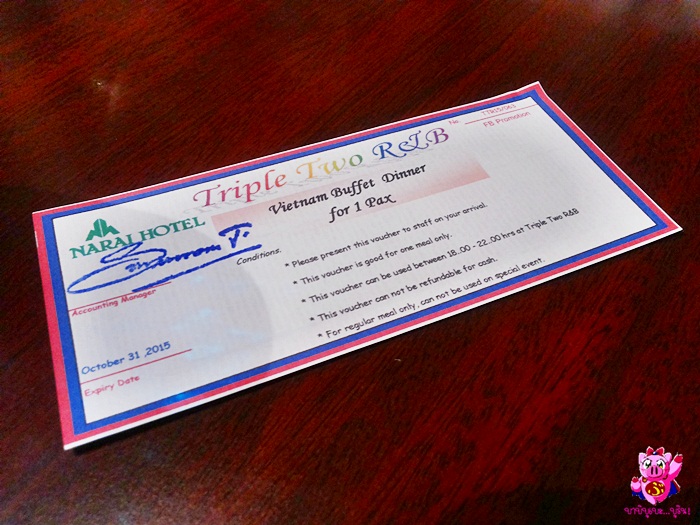 No. TTRB/583
FB Promotion
Triple Two R&B
Vietnam Buffet Dinner
for 1 Pax
NARAI HOTEL
Accounting Manager
October 31 ,2015
Expiry Date
Conditions:
* Please present this voucher to staff on your arrival.
* This voucher is good for one meal only.
* This voucher can be used between 18..00 - 22..00 hrs at Triple Two R&B
* This voucher can not be refundable for cash.
* For regular meal only, can not be used on special event.